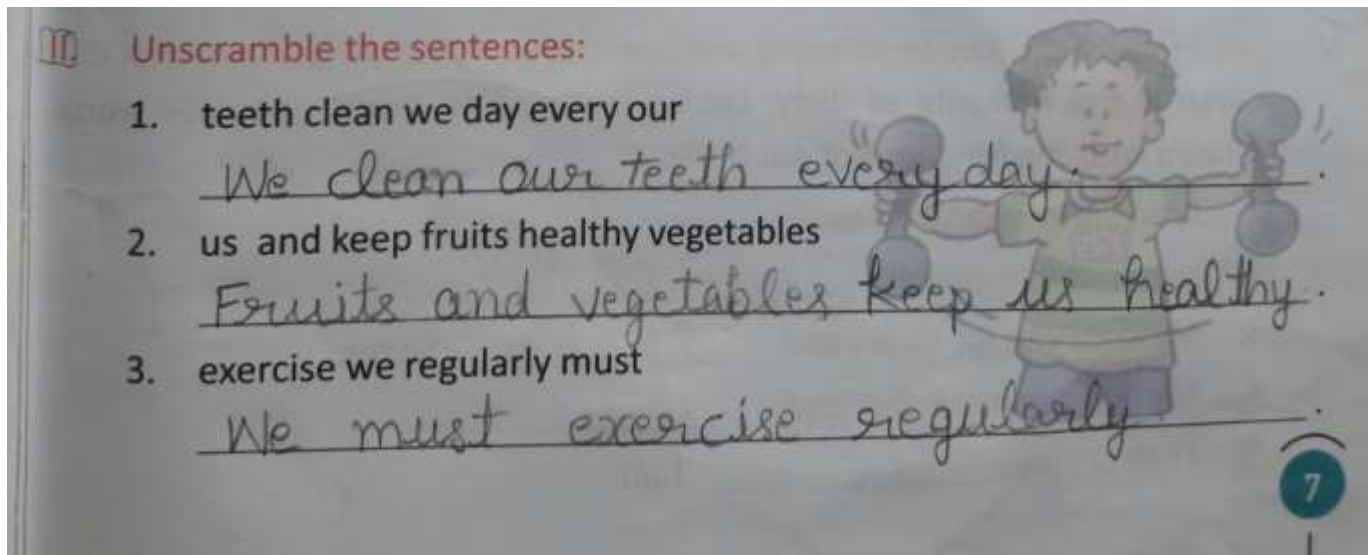 II. Unscramble the sentences:
1. teeth clean we day every our
We clean our teeth every day. .
2. us and keep fruits healthy vegetables
Fruits and vegetables keep us healthy .
3. exercise we regularly must
We must exercise regularly .
7